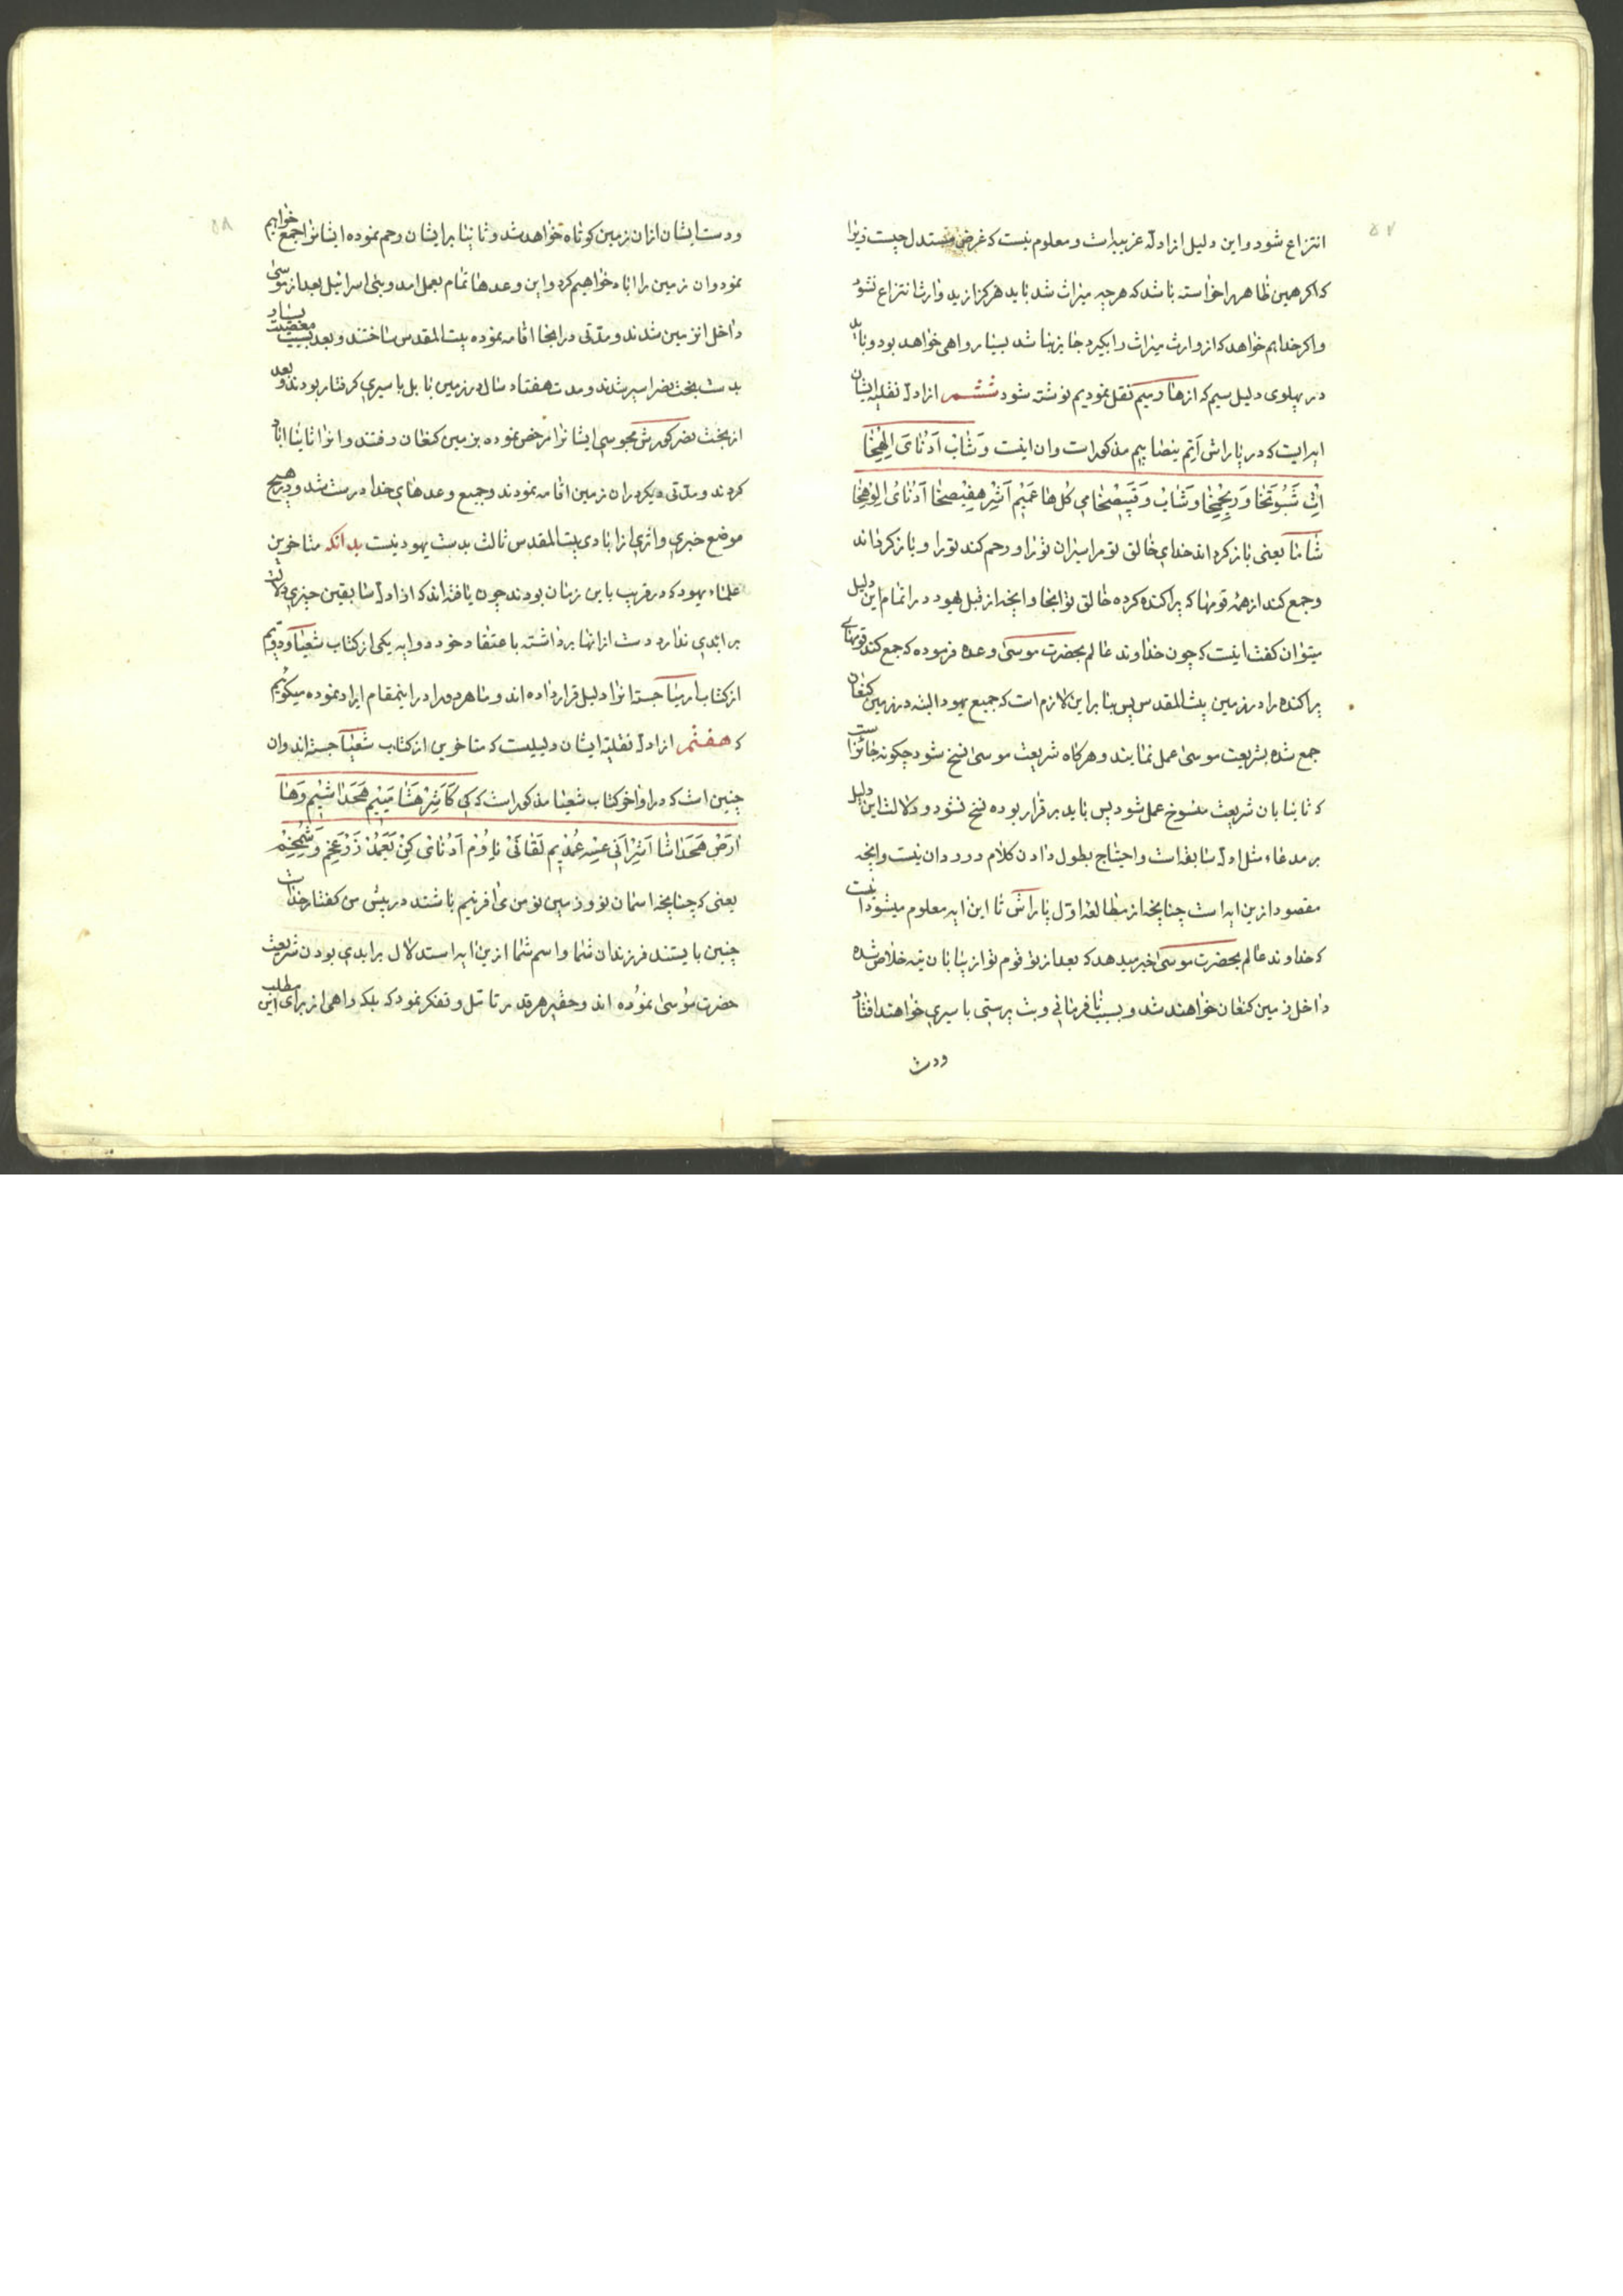 ۵۷
انتزاع شود و این دلیل از ادلهٔ غریبه است و معلوم نیست که غرض مستدل چیست زیرا
که اکر همین ظاهر را خواسته باشد که هر چه میراث شد باید هرکز از ید وارث انتزاع نشود
و اکر خدا هم خواهد که از وارث میراث را بکیرد جایز نباشد بسیار واهی خواهد بود و باید
در پهلوی دلیل سیم که از هارمیم نقل نمودیم نوشته شود ششم از ادلهٔ نقلیه ایشان
ایه ایست که در پاراش اَتِم نیصابیم مذکور است و ان اینست وَشاب اَدُنای اِلُهِخا
اِث شَبُوتَخا وَرِحِمِخا وَشاب وَقِبِصخا مِی کُل هاعَمیم اَشِر هِفیصخا اَدُنای اِلوُهِخا
شاما یعنی باز کرداند خدای خالق تو مراسیران تو را و رحم کند تو را و باز کرداند
و جمع کند از همهٔ قومها که پراکنده کرده خالق تو انجا و انچه از قبل یهود در اتمام این دلیل
میتوان کفت اینست که چون خداوند عالم بحضرت موسی وعده فرموده که جمع کند قومهای
پراکنده را در زمین بیت المقدس پس بنا بر این لازم است که جمیع یهود البته در زمین کنعان
جمع شده بشریعت موسی عمل نمایند و هرکاه شریعت موسی نسخ شود چکونه جائز است
که ثانیا بان شریعت منسوخ عمل شود پس باید برقرار بوده نسخ نشود و دلالت این دلیل
بر مدعاء مثل ادلهٔ سابقه است و احتیاج بطول دادن کلام در رد ان نیست و انچه
مقصود ازین ایه است چنانچه از مطالعهٔ اول پاراش تا این ایه معلوم میشود اینست
که خداوند عالم بحضرت موسی خبر میدهد که بعد از تو قوم تو از بیابان تیه خلاص شده
داخل زمین کنعان خواهند شد و بسبب نافرمانی و بت پرستی باسیری خواهند افتاد
ودست
۵۸
ودست ایشان از ان زمین کوتاه خواهد شد و ثانیا بر ایشان رحم نموده ایشانرا جمع خواهیم
نمود و ان زمین را اباد خواهیم کرد و این وعدها تمام بعمل امد و بنی اسرائیل بعد از موسی
داخل انزمین شدند و مدتی در انجا اقامه نموده بیت المقدس ساختند و بعد بسبب معصیت بسیار
بدست بخت نصر اسیر شدند و مدت هفتاد سال در زمین بابل باسیری کرفتار بودند و بعد
از بخت نصر کورش مجوسی ایشانرا مرخص نموده بزمین کنعان رفتند و انرا ثانیا اباد
کردند و مدتی دیکر در ان زمین اقامه نمودند و جمیع وعدهای خدا درست شد و در هیچ
موضع خبری و اثری از ابادی بیت المقدس ثالث بدست یهود نیست بدانکه متاخرین
علماء یهود که در قریب باین زمان بودند چون یافته اند که از ادلهٔ سابقین چیزی دلالت
بر ابدی ندارد دست از انها برداشته باعتقاد خود دو ایه یکی از کتاب شعیا و دویم
از کتاب ارمیا جسته انرا دلیل قرار داده اند و ما هر دو را در اینمقام ایراد نموده میکوئیم
که هفتم از ادلهٔ نقلیه ایشان دلیلیست که متاخرین از کتاب شعیا جسته اند و ان
چنین است که در اواخر کتاب شعیا مذکور است که کی کَاَشِر هَشامَیِم هَحَداشیم وَها
اَرَص هَحَداشا اَشِر اَنی عسِه عُمدیم لَفانَی نِاوُم اَدُنای کِن یَعَمُد زَرعَخِم وَشِمخِم
یعنی که چنانچه اسمان نو و زمین نو من می افرینیم باشند در پیش من کفتار خداست
چنین بایستند فرزندان شما و اسم شما ازین ایه استدلال بر ابدی بودن شریعت
حضرت موسی نموده اند و حقیر هر قدر تامل و تفکر نمود که بلکه راهی از برای این مطلب